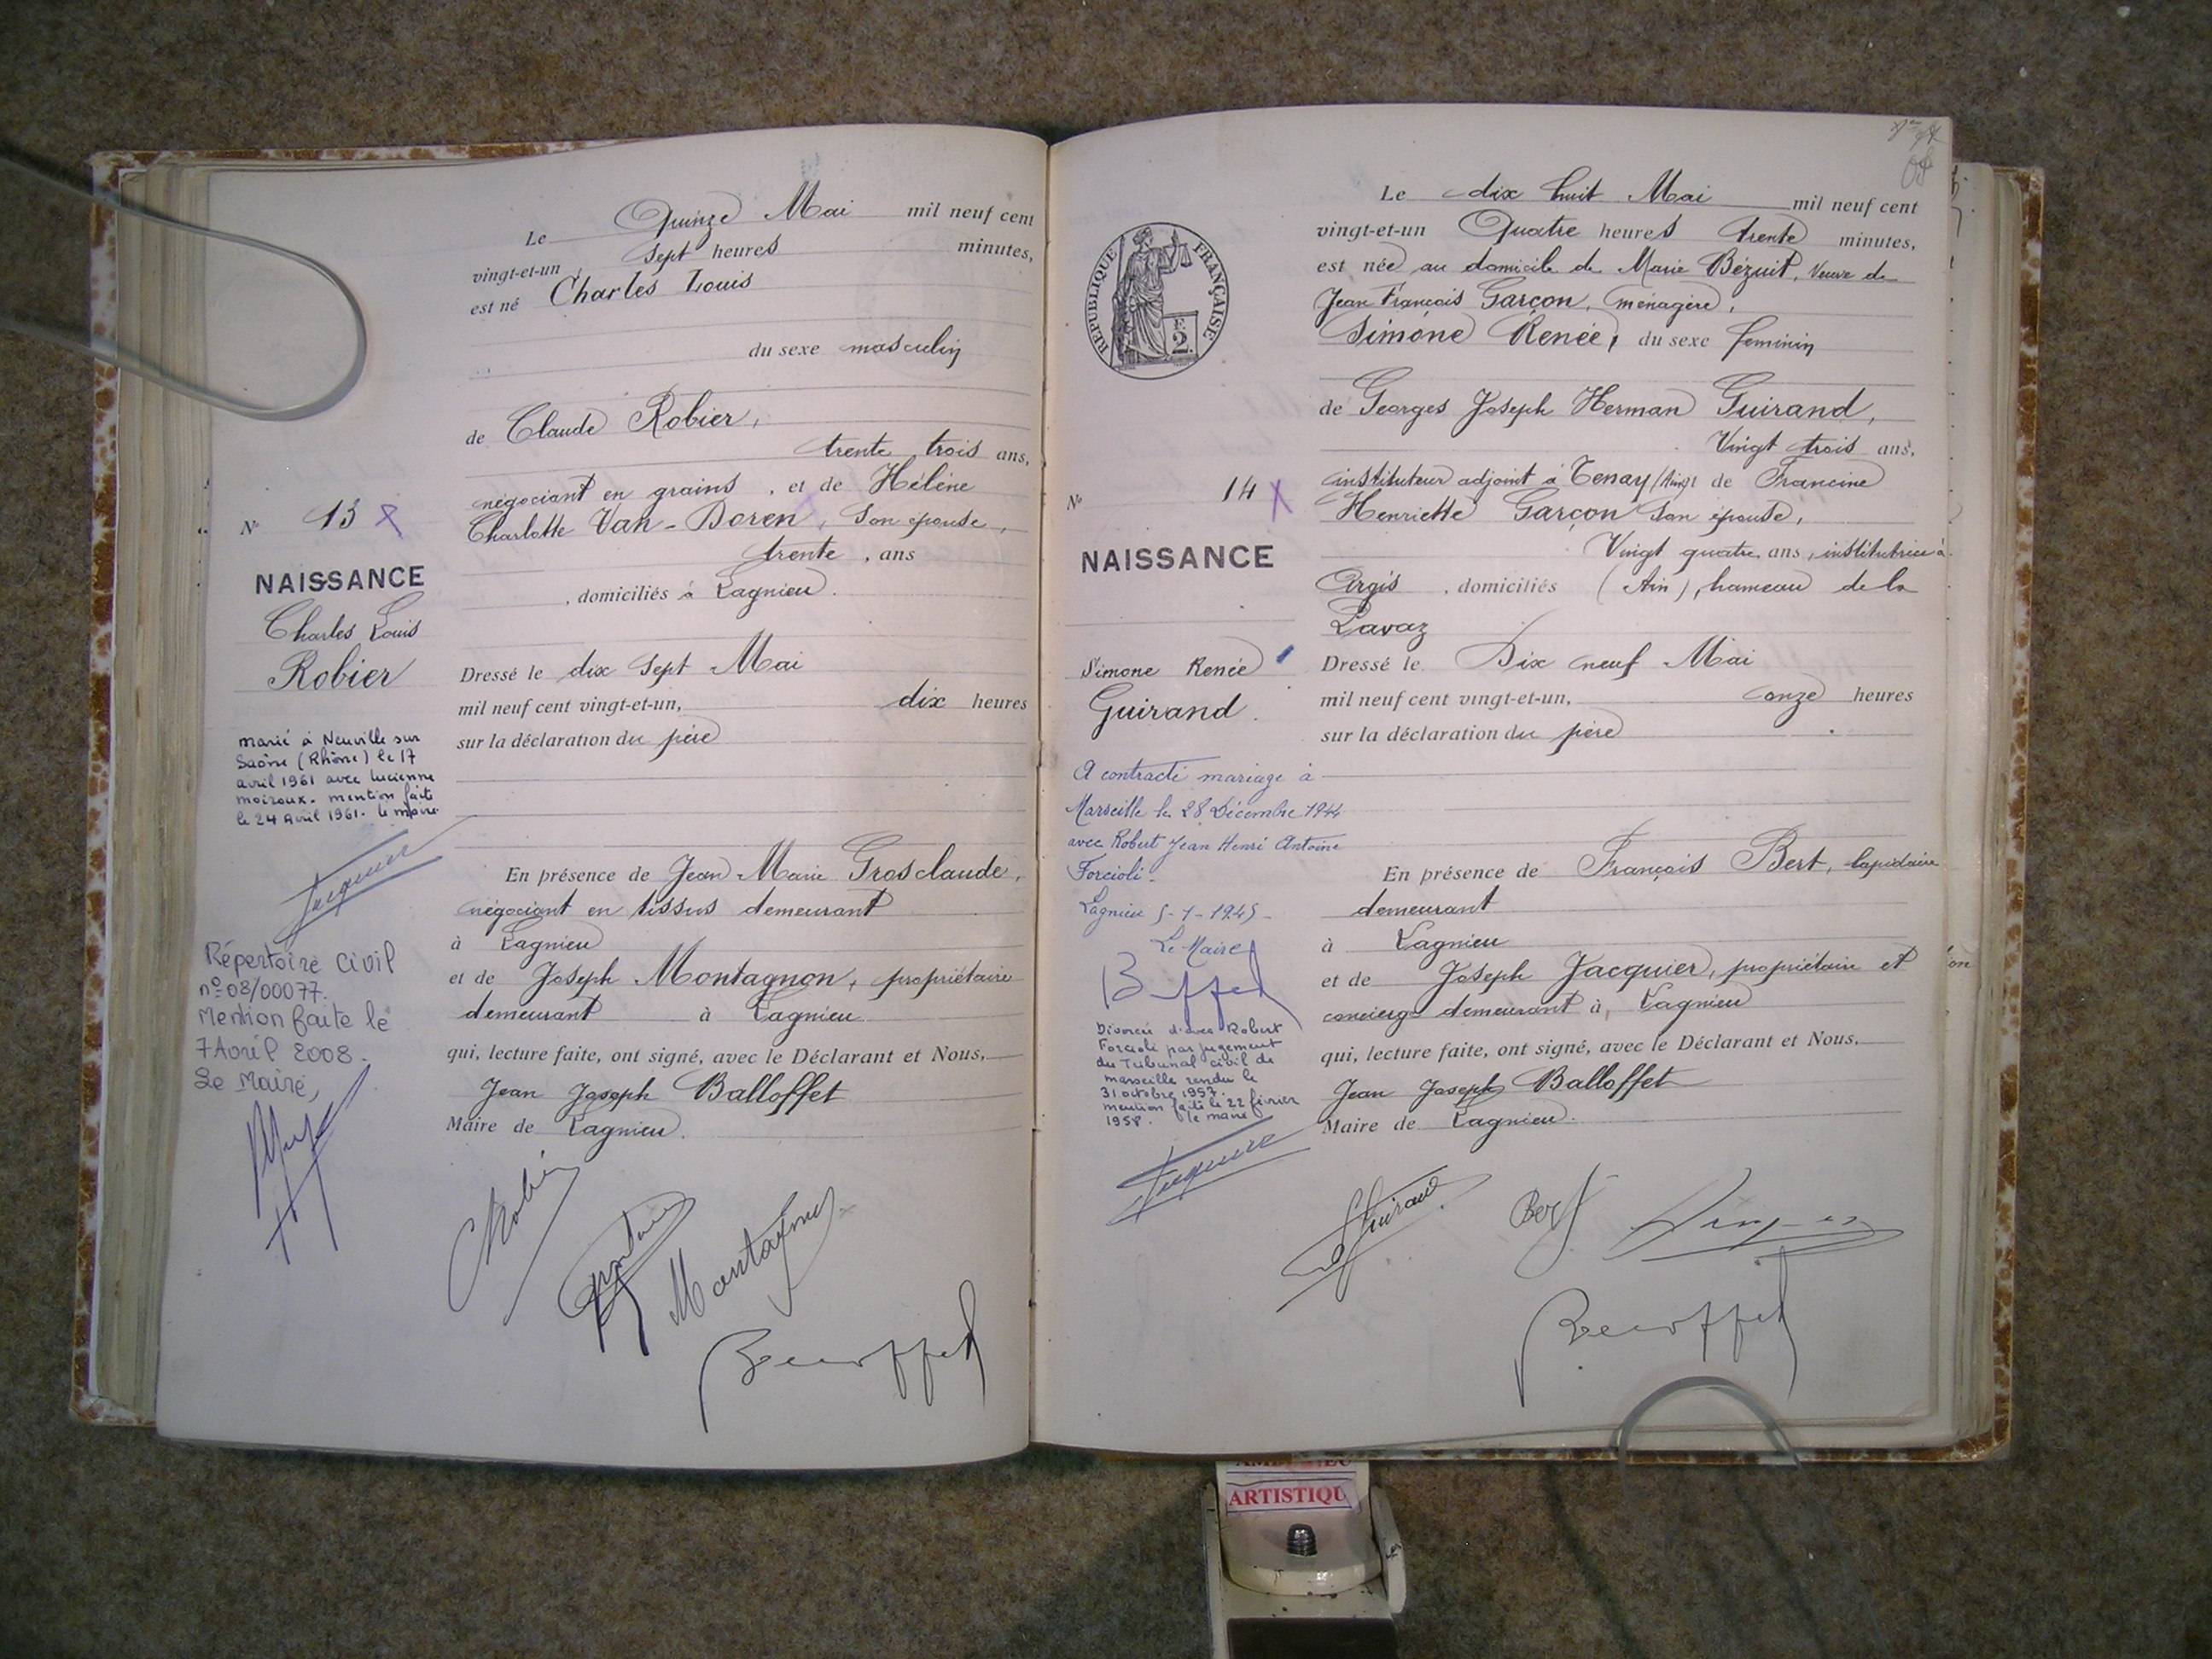 Le Quinze Mai mil neuf cent
vingt-et-un, sept heures minutes,
est né Charles Louis
du sexe masculin
de Claude Robier,
trente trois ans,
négociant en grains, et de Hélène
Charlotte Van-Doren, son épouse,
trente, ans
, domiciliés à Lagnieu.
Dressé le dix sept Mai
mil neuf cent vingt-et-un, dix heures
sur la déclaration du père
En présence de Jean Marie Grosclaude,
négociant en tissus demeurant
à Lagnieu
et de Joseph Montagnon, propriétaire
demeurant à Lagnieu
qui, lecture faite, ont signé, avec le Déclarant et Nous,
Jean Joseph Balloffet
Maire de Lagnieu.
N° 13 X
NAISSANCE
Charles Louis
Robier
marié à Neuville sur
Saône (Rhône) le 17
avril 1961 avec Lucienne
moiroux. mention faite
le 24 avril 1961. le maire
Répertoire Civil
n° 08/00077.
Mention faite le
7 Avril 2008.
Le Maire,
Montagnon
68
RÉPUBLIQUE FRANÇAISE
F.
2.
Le dix huit Mai mil neuf cent
vingt-et-un Quatre heures trente minutes,
est née au domicile de Marie Bézuit, Veuve de
Jean François Garçon, ménagère,
Simone Renée, du sexe feminin
de Georges Joseph Herman Guirand,
Vingt trois ans,
instituteur adjoint à Tenay (Ain) et de Francine
Henriette Garçon son épouse,
Vingt quatre ans, institutrice à
Argis, domiciliés (Ain), hameau de la
Lavaz
Dressé le Dix neuf Mai
mil neuf cent vingt-et-un, onze heures
sur la déclaration du père
En présence de François Bert, lapidaire
demeurant
à Lagnieu
et de Joseph Jacquier, propriétaire et
concierge demeurant à, Lagnieu
qui, lecture faite, ont signé, avec le Déclarant et Nous,
Jean Joseph Balloffet
Maire de Lagnieu.
N° 14 X
NAISSANCE
Simone Renée
Guirand.
A contracté mariage à
Marseille le 28 Décembre 1944
avec Robert Jean Henri Antoine
Forcioli.
Lagnieu 5-1-1945
Le Maire
Divorcée d'avec Robert
Forcioli par jugement
du Tribunal civil de
marseille rendu le
31 octobre 1957.
mention faite le 22 février
1958. le maire
Guirand
Bert
ARTISTIQU